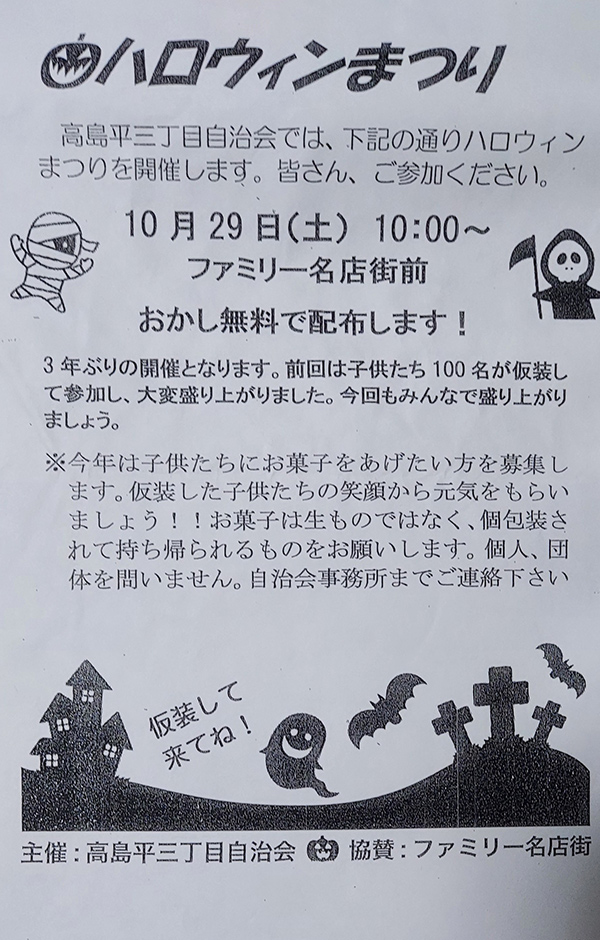 ハロウィンまつり
高島平三丁目自治会では、下記の通りハロウィン
まつりを開催します。皆さん、ご参加ください。
10月29日(土) 10:00～
ファミリー名店街前
おかし無料で配布します！
3年ぶりの開催となります。前回は子供たち100名が仮装し
て参加し、大変盛り上がりました。今回もみんなで盛り上がり
ましょう。
※今年は子供たちにお菓子をあげたい方を募集し
ます。仮装した子供たちの笑顔から元気をもらい
ましょう！！お菓子は生ものではなく、個包装さ
れて持ち帰られるものをお願いします。個人、団
体を問いません。自治会事務所までご連絡下さい
仮装して
来てね！
主催：高島平三丁目自治会 協賛：ファミリー名店街